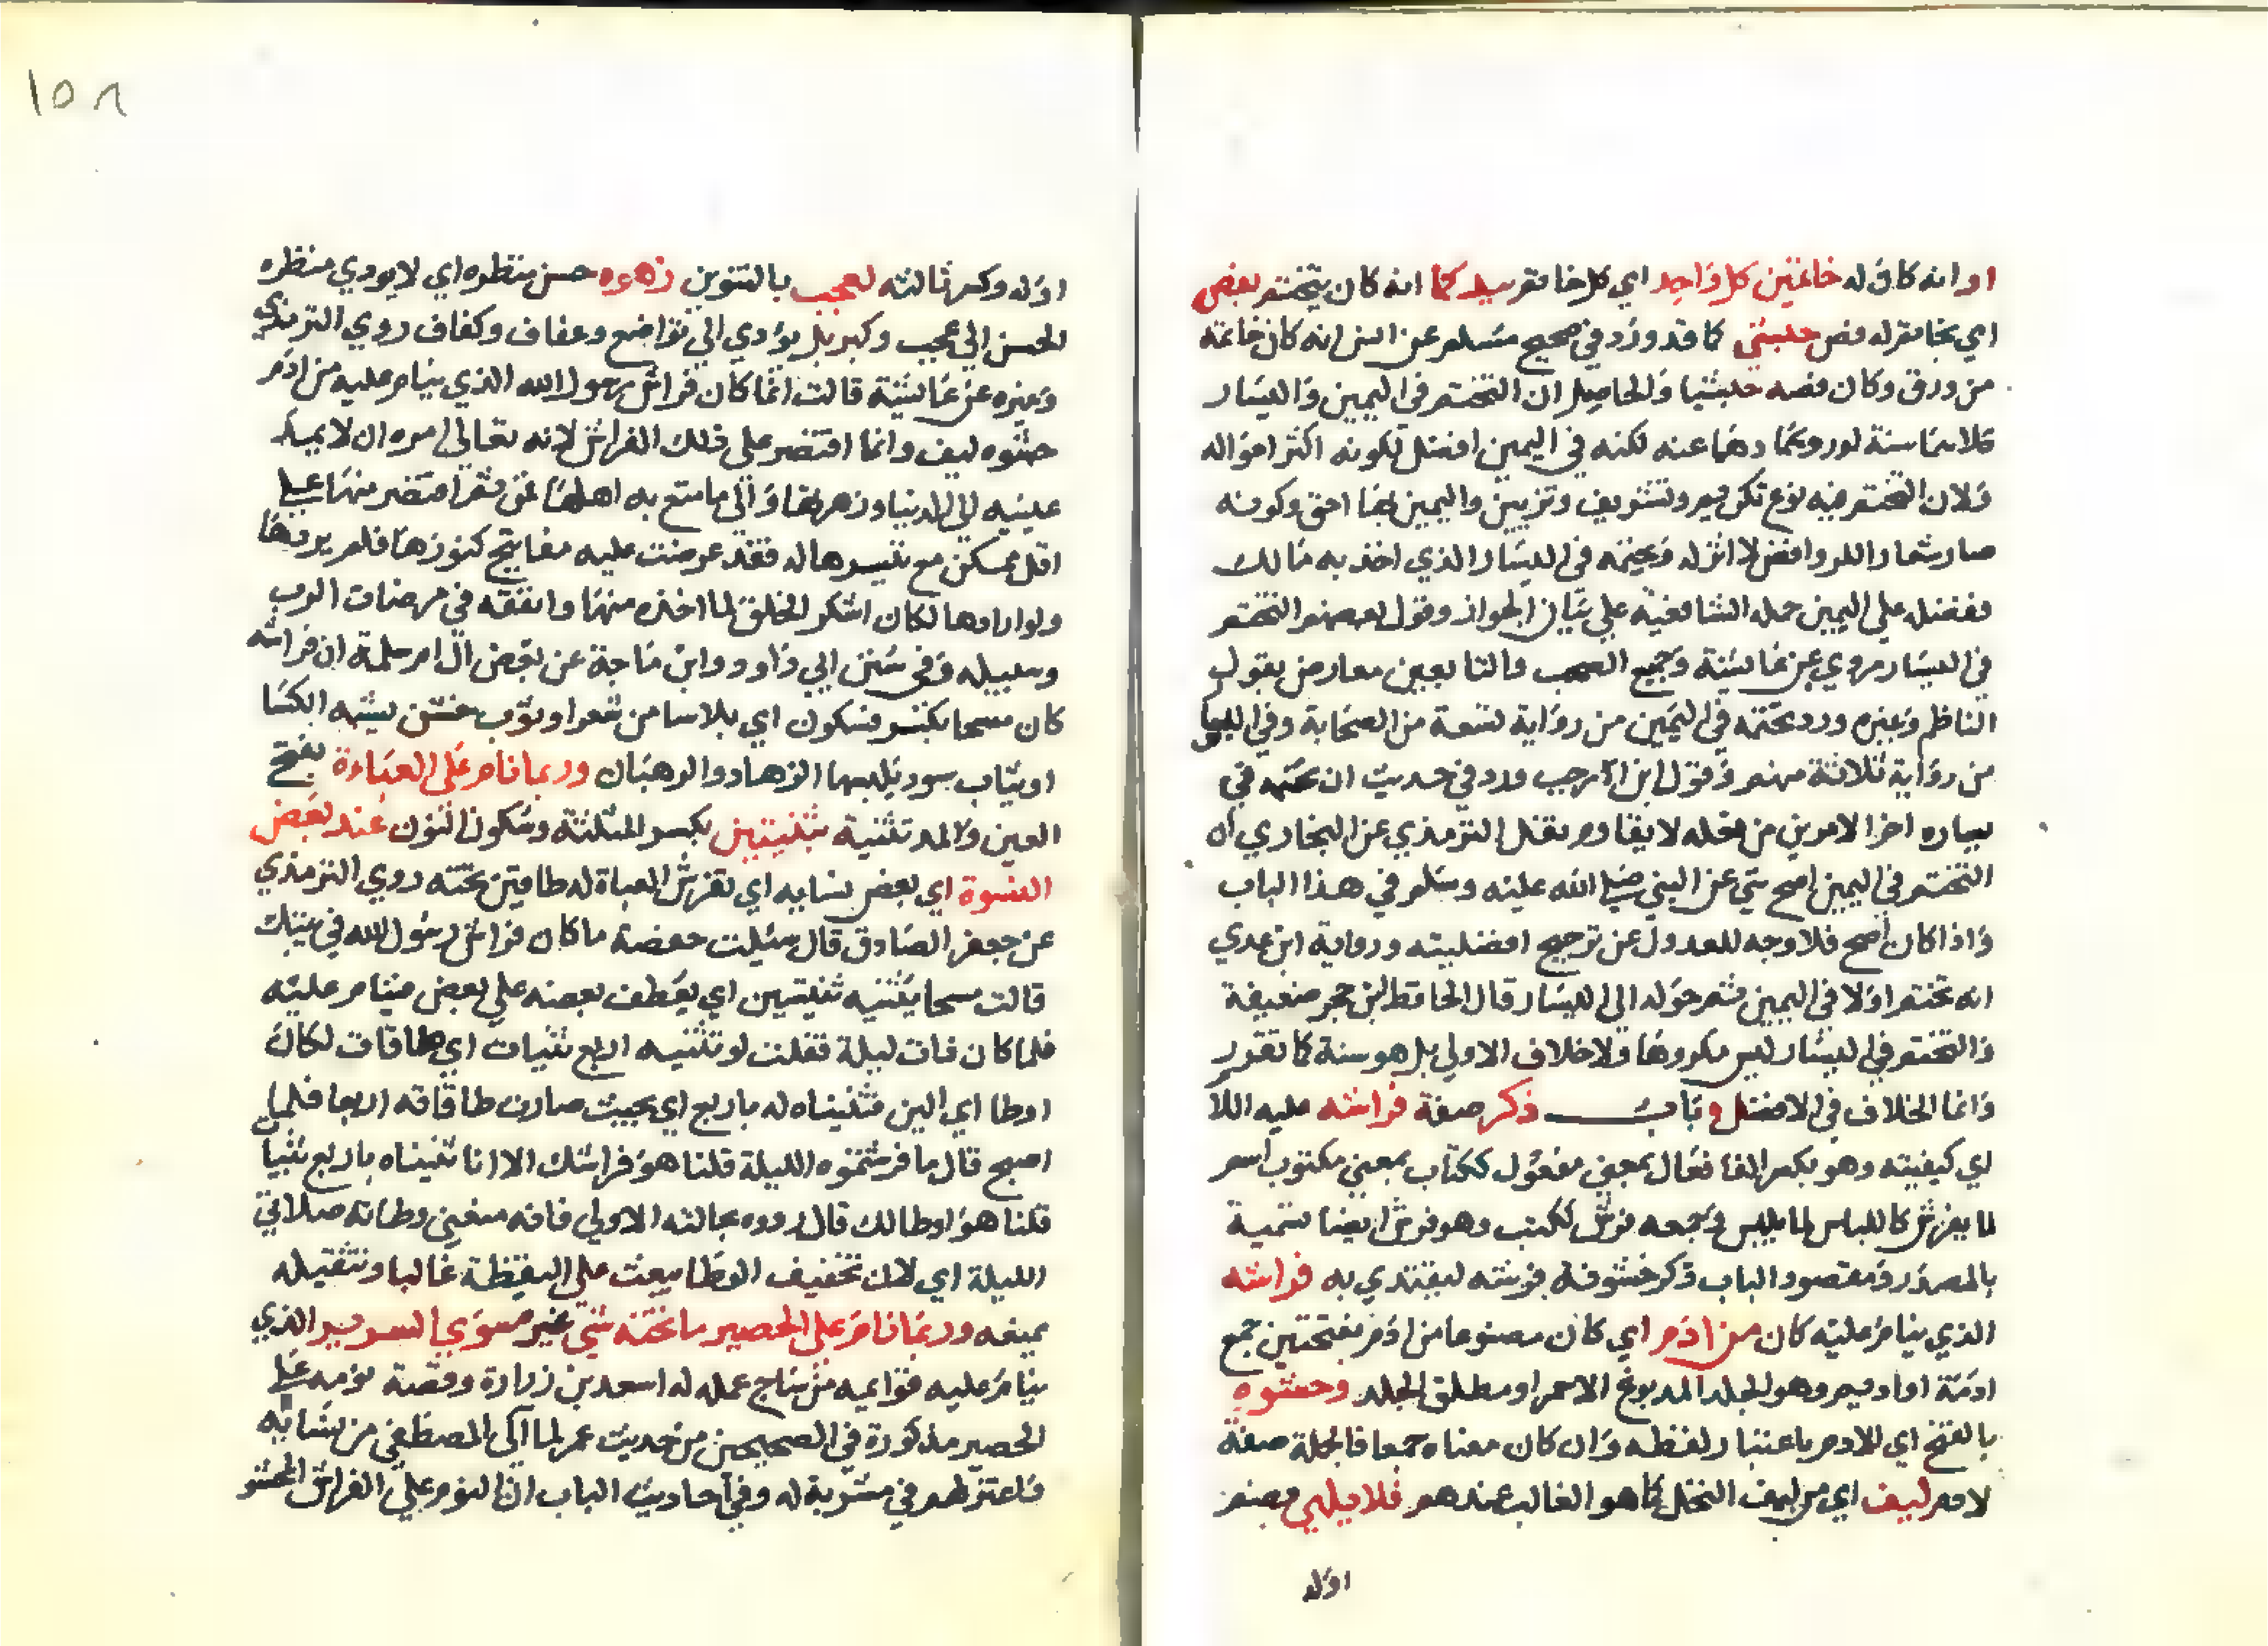 او انه كان له خاتمين كل واحد اي كل خاتم بيد كما انه كان يتختم بفص
اي بخاتم له فص حبشي كما قد ورد في صحيح مسلم عن انس انه كان خاتمه
من ورق وكان فصه حبشيا والحاصل ان التختم في اليمين واليسار
كلاهما سنة لورودهما عنه لكنه في اليمين افضل لكونه اكثر احواله
ولان التختم فيه نوع تكريم وتشريف وتزيين واليمين بها احق وكونه
صار شعار الروافض لا اثر له وتختمه في اليسار الذي اخذ به مالك
ففضله على اليمين حمله الشافعية على بيان الجواز وقول بعضهم التختم
في اليسار مروي عن عائشة وجميع الصحب والتابعين معارض بقول
الناظم وغيره ورد تختمه في اليمين من رواية تسعة من الصحابة وفي اليسار
من رواية ثلاثة منهم وقول ابن رجب ورد في حديث ان تختمه في
يساره اخر الامرين من فعله لا يقاوم نقل الترمذي عن البخاري ان
التختم في اليمين اصح شي عن النبي صلى الله عليه وسلم في هذا الباب
واذا كان اصح فلا وجه للعدول عن ترجيح افضليته ورواية ابن عدي
انه تختم اولا في اليمين ثم حوله الى اليسار قال الحافظ ابن حجر ضعيفة
والتختم في اليسار ليس مكروها ولا خلاف الاولي بل هو سنة كما تقرر
وانما الخلاف في الافضل وباب ذكر صفة فراشه عليه السلام
اي كيفيته وهو بكسر الفا فعال بمعنى مفعول ككتاب بمعنى مكتوب اسم
لما يفرش كاللباس لما يلبس وجمعه فرش ككتب وهو فرش ايضا تسمية
بالمصدر ومقصود الباب ذكر خشونة فرشه ليقتدي به فراشه
الذي ينام عليه كان من ادم اي كان مصنوعا من ادم بفتحتين جمع
ادمة او اديم وهو الجلد المدبوغ الاحمر او مطلق الجلد وحشوه
بالفتح اي للادم باعتبار لفظه وان كان معناه جمعا فالجملة صفة
لادم ليف اي من ليف النخل كما هو الغالب عندهم فلا يلهي بضم
اوله
١٥٨
اوله وكسر ثالثه لعجب بالتنوين زهوه حسن منظره اي لا يودي منظره
الحسن الي عجب وكبر بل يؤدي الي تواضع وعفاف وكفاف روي الترمذي
وغيره عن عائشة قالت انما كان فراش رسول الله الذي ينام عليه من ادم
حشوه ليف وانما اقتصر على ذلك الفراش لانه تعالى امره ان لا يمد
عينيه الي الدنيا وزهرتها والي ما متع به اهلها فمن ثم اقتصر منها على
اقل ممكن مع تيسرها له فقد عرضت عليه مفاتيح كنوزها فلم يردها
ولو ارادها لكان اشكر الخلق لما اخذه منها وانفقه في مرضات الرب
وسبيله وفي سنن ابي داود وابن ماجة عن بعض ال ام سلمة ان فراشه
كان مسحا بكسر فسكون اي بلاسا من شعر او ثوب خشن يشبه الكسا
او ثياب سود يلبسها الزهاد والرهبان وربما نام على العباءة بفتح
العين والمد تثنية بثنيتين بكسر المثلثة وسكون النون عند بعض
النسوة اي بعض نسايه اي تفرش العباة له طاقين تحته روي الترمذي
عن جعفر الصادق قال سئلت حفصة ما كان فراش رسول الله في بيتك
قالت مسحا يثنيه ثنيتين اي يعطف بعضه على بعض فينام عليه
فلما كان ذات ليلة فقلت لو تثنيه اربع ثنيات اي طاقات لكان
اوطا اي الين فثنيناه له باربع اي بحيث صارت طاقاته اربعا فلما
اصبح قال ما فرشتموه الليلة قلنا هو فراشك الا انا ثنيناه باربع ثنيا
قلنا هو اوطا لك قال ردوه بحالته الاولى فانه منعني وطاته صلاتي
الليلة اي لان تخفيف الوطا يبعث على اليقظة غالبا وتثقيله
يمنعه وربما نام على الحصير ما تحته شي غير سوي السرير الذي
ينام عليه قوايمه من ساج عمله له اسعد بن زرارة وقصة نومه على
الحصير مذكورة في الصحيحين من حديث عمر لما الى المصطفى من نسائه
فاعتزلهم في مشربة له وفي احاديث الباب ان النوم على الفراش المحشو